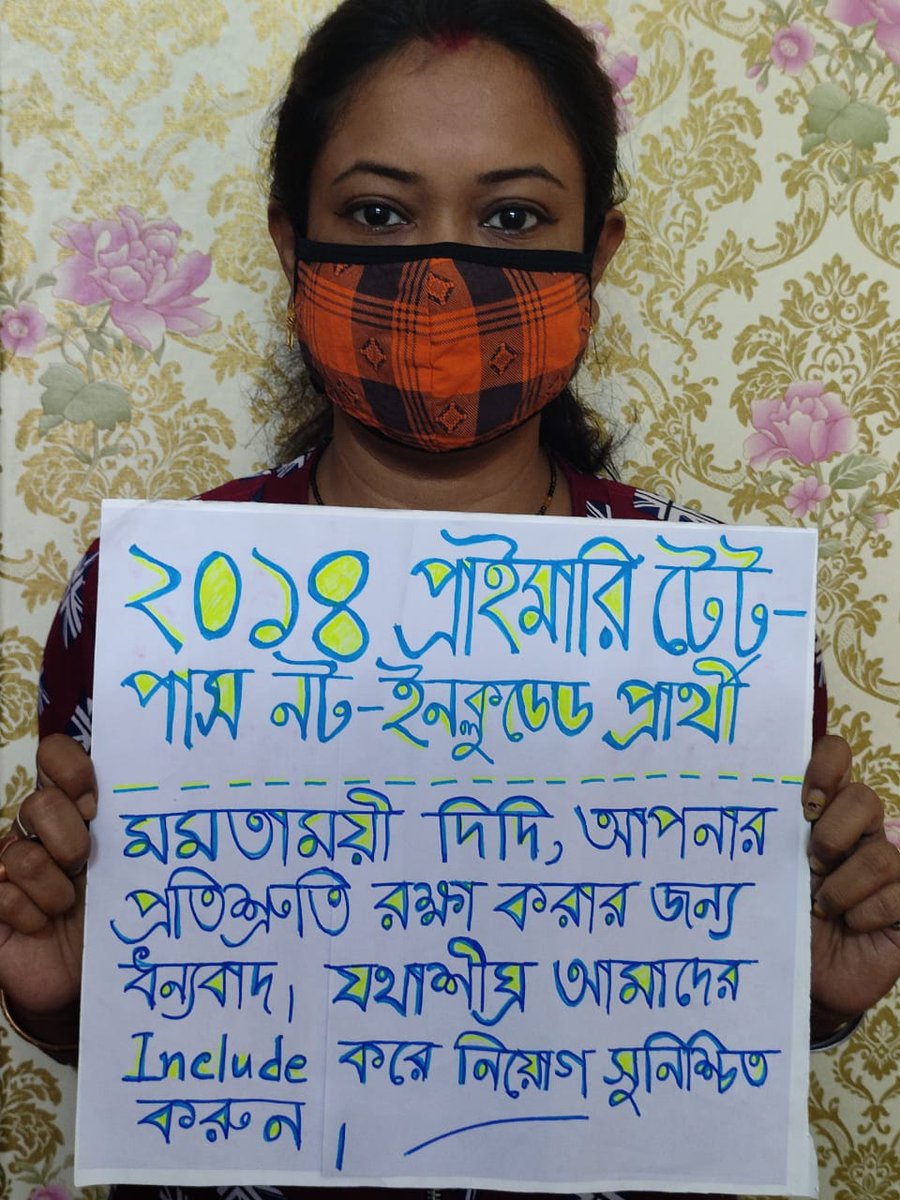 ২০১৪ প্রাইমারি টেট-
পাস নট-ইনক্লুডেড প্রার্থী
মমতাময়ী দিদি, আপনার
প্রতিশ্রুতি রক্ষা করার জন্য
ধন্যবাদ। যথাশীঘ্র আমাদের
Include করে নিয়োগ সুনিশ্চিত
করুন।